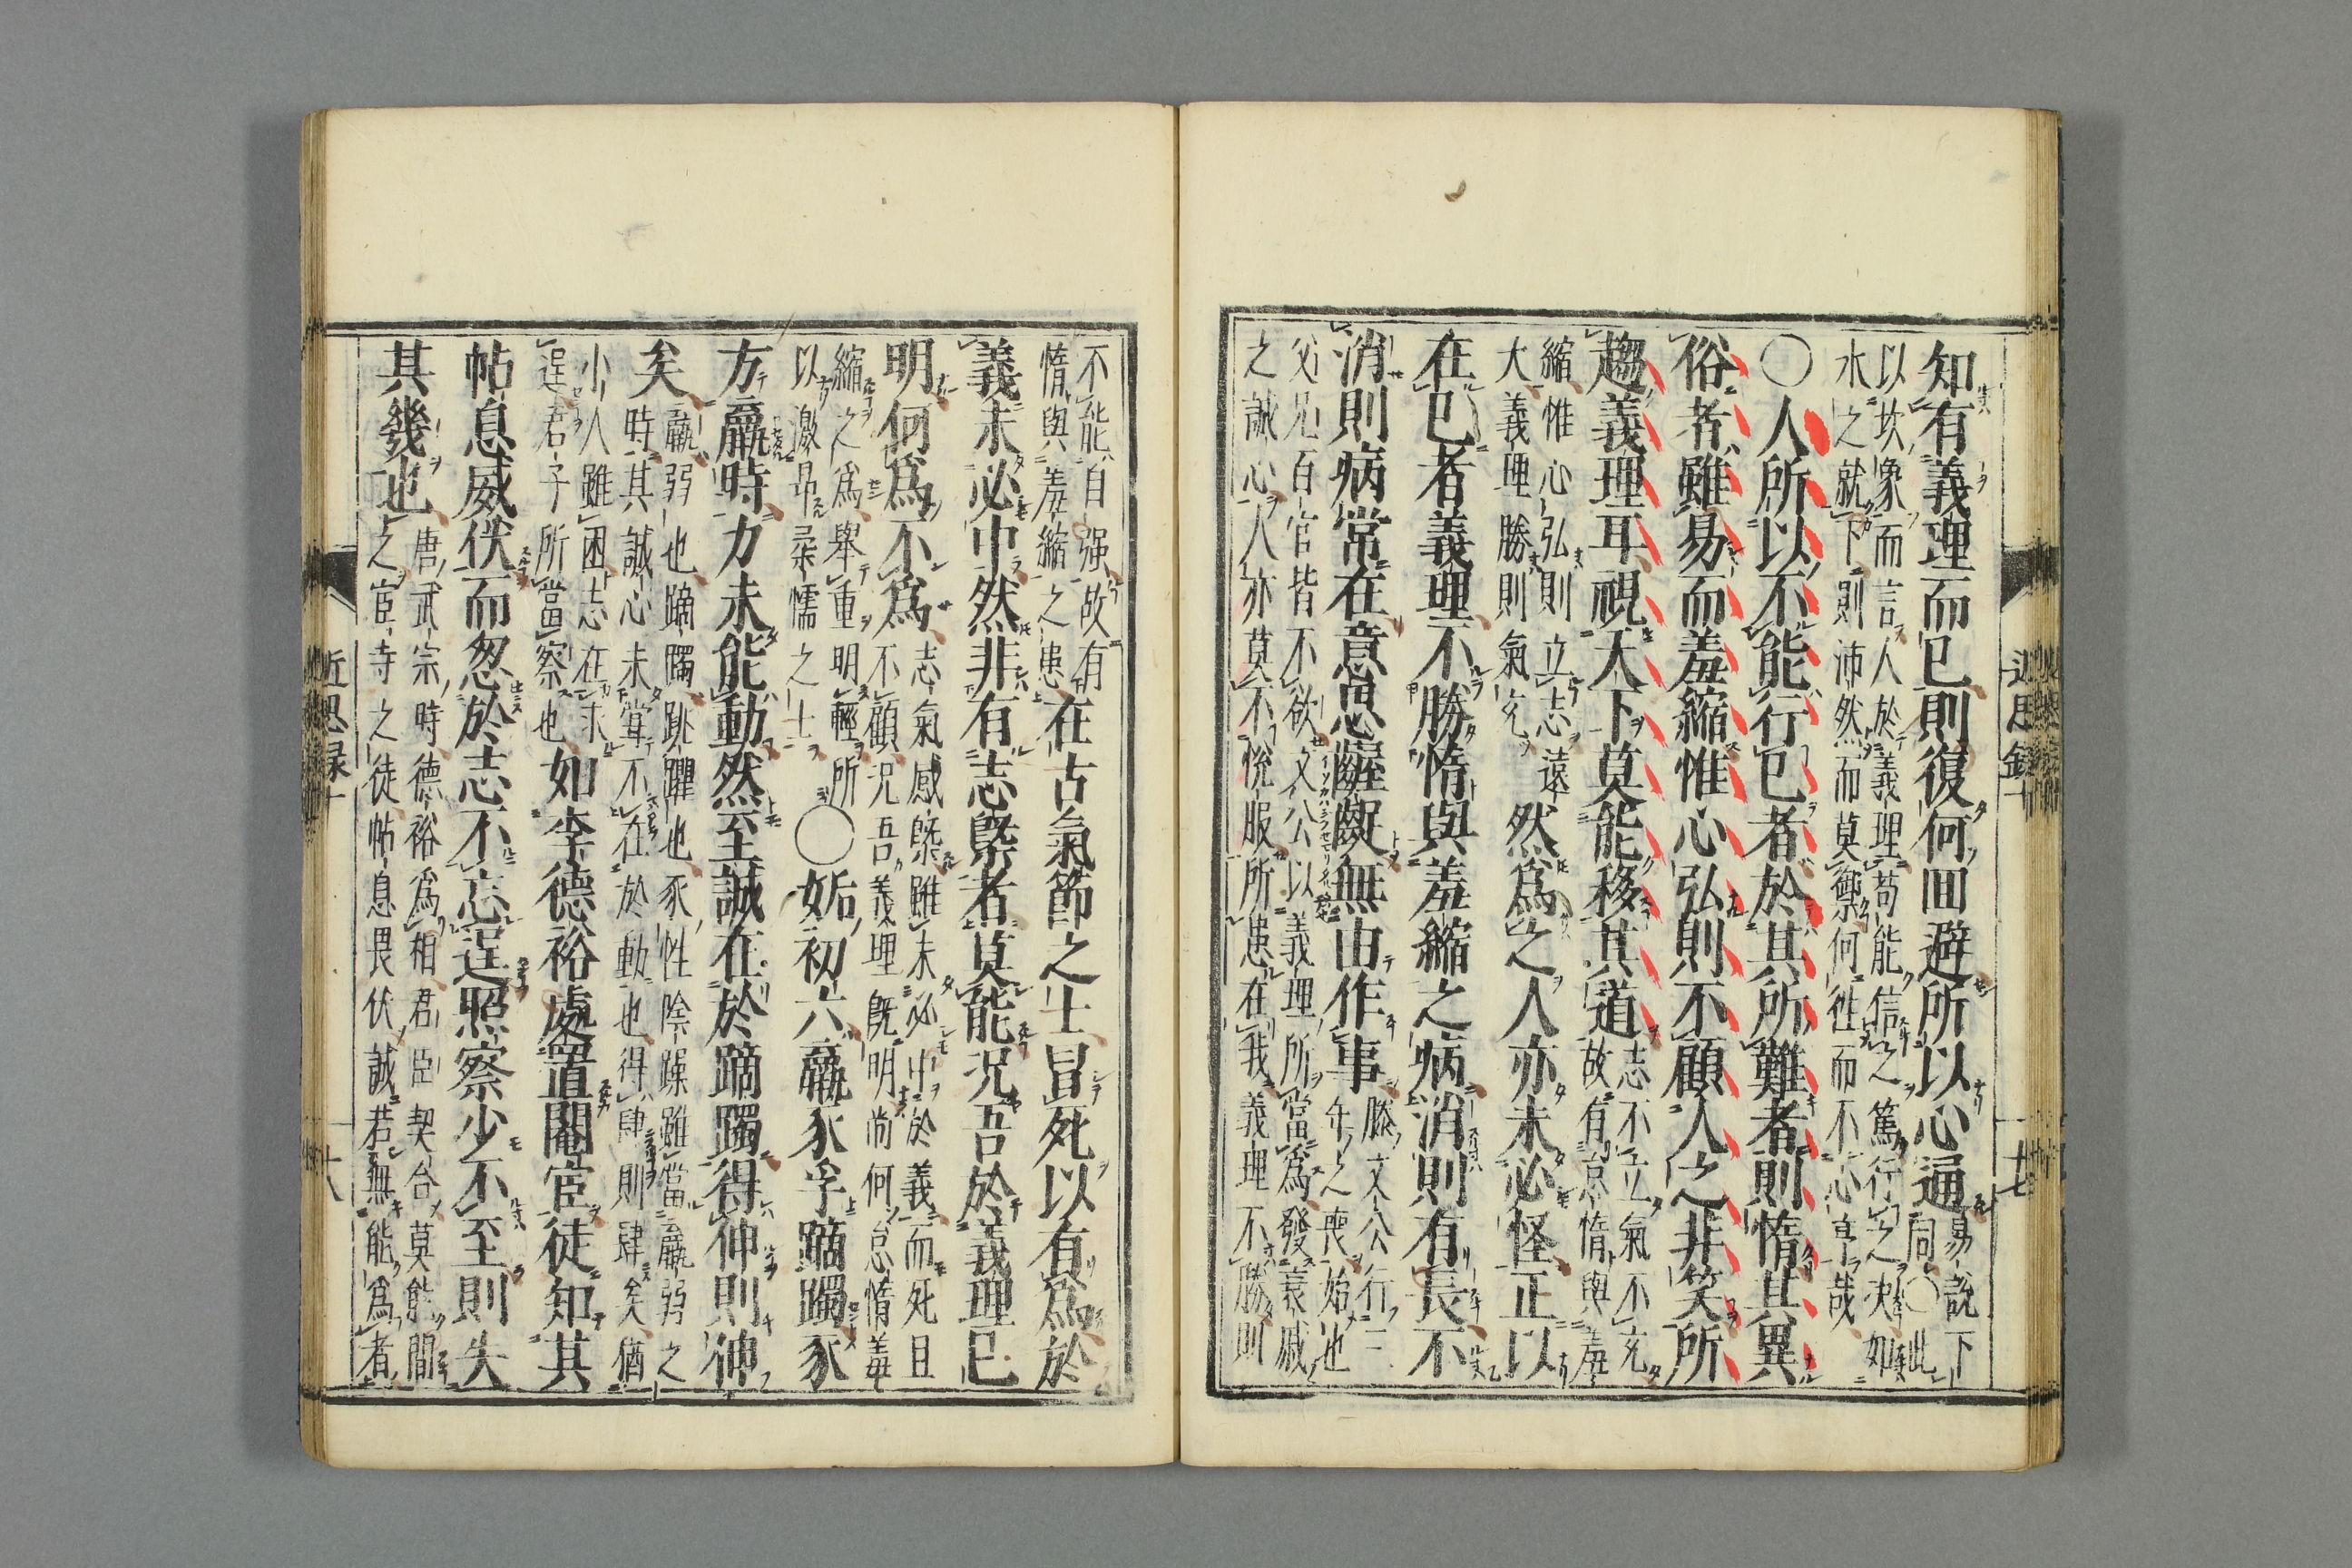 知有義理而已則復何回避所以心通易說下同○此
以坎象而言人於義理苟能信之篤行之決如
水之就下則沛然而莫禦何往而不心亨哉
○人所以不能行已者於其所難者則惰其異
俗者雖易而羞縮惟心弘則不顧人之非笑所
趨義理耳視天下莫能移其道志不立氣不充故有怠惰與羞
縮惟心弘則立志遠
大義理勝則氣充
然爲之人亦未必怪正以
在已者義理不勝惰與羞縮之病消則有長不
消則病常在意思齷齪無由作事滕文公行三年之喪始也
父兄百官皆不欲文公以義理所當爲發哀戚
之誠心人亦莫不悅服所患在我義理不勝則
不能自强故有
惰與羞縮之患
在古氣節之士冒死以有爲於
義未必中然非有志槩者莫能況吾於義理已
明何爲不爲志氣感槩雖未必中於義而死且不顧況吾義理既明尚何怠惰羞
縮之爲舉重明輕所
以激昂柔懦之士
○姤初六羸豕孚蹢躅豕
方羸時力未能動然至誠在於蹢躅得伸則伸
矣羸弱也蹢躅跳躍也豕性陰躁雖當羸弱之時其誠心未嘗不在於動也得肆則肆矣猶
小人雖困志在求
逞君子所當察也
如李德裕處置閹宦徒知其
帖息威伏而忽於志不忘逞照察少不至則失
其幾也唐武宗時德裕爲相君臣契合莫能間之宦寺之徒帖息畏伏誠若無能爲者
近思録十
十七
近思録十
十八